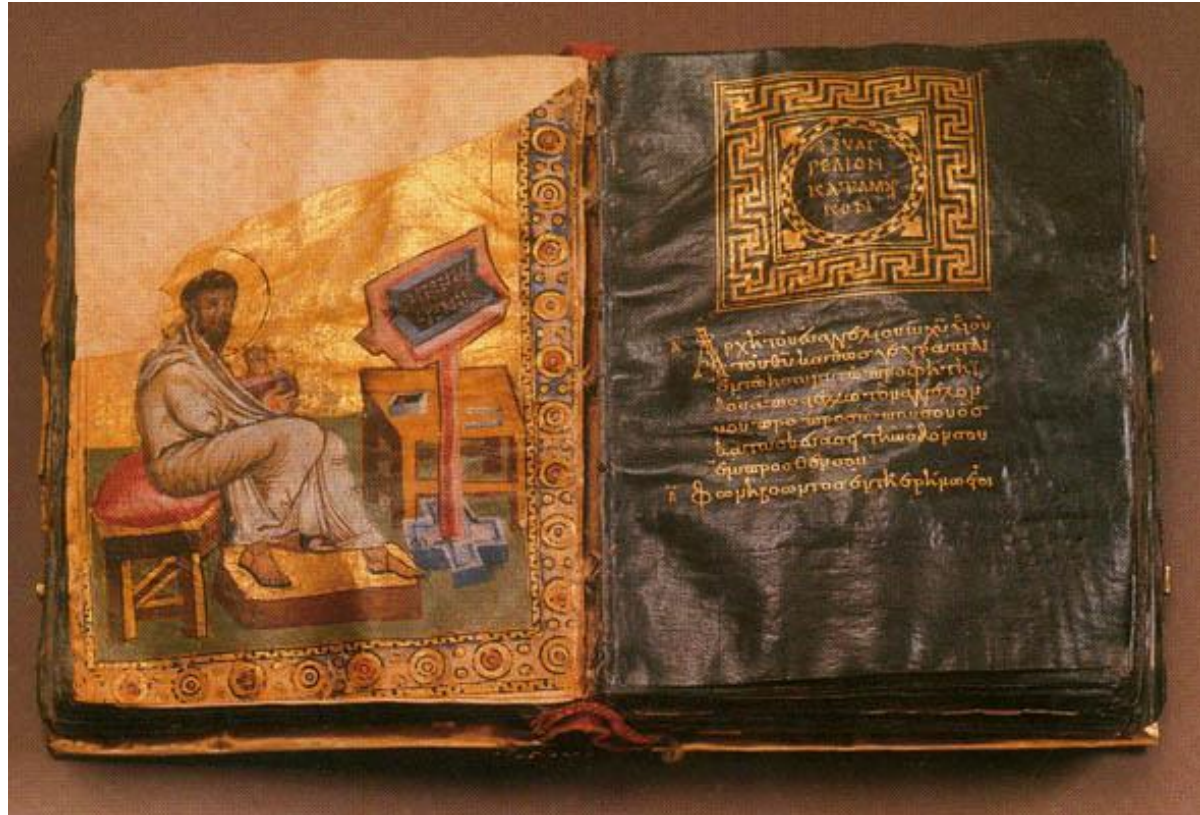 ΕΥΑΓ
ΓΕΛΙΟΝ
ΚΑΤΑ ΜΑΡ
ΚΟΝ
Ἀρχὴ τοῦ εὐαγγελίου ιυ χυ υἱοῦ
τοῦ θυ καθὼς γέγραπται
ἐν τῶ ἡσαΐα τῶ προφήτη
ἰδοὺ ἀποστέλλω τὸν ἄγγελόν
μου πρὸ προσώπου σου ὃς
κατασκευάσει τὴν ὁδόν σου
ἔμπροσθέν σου
φωνὴ βοῶντος ἐν τῆ ἐρήμω ἑτοι